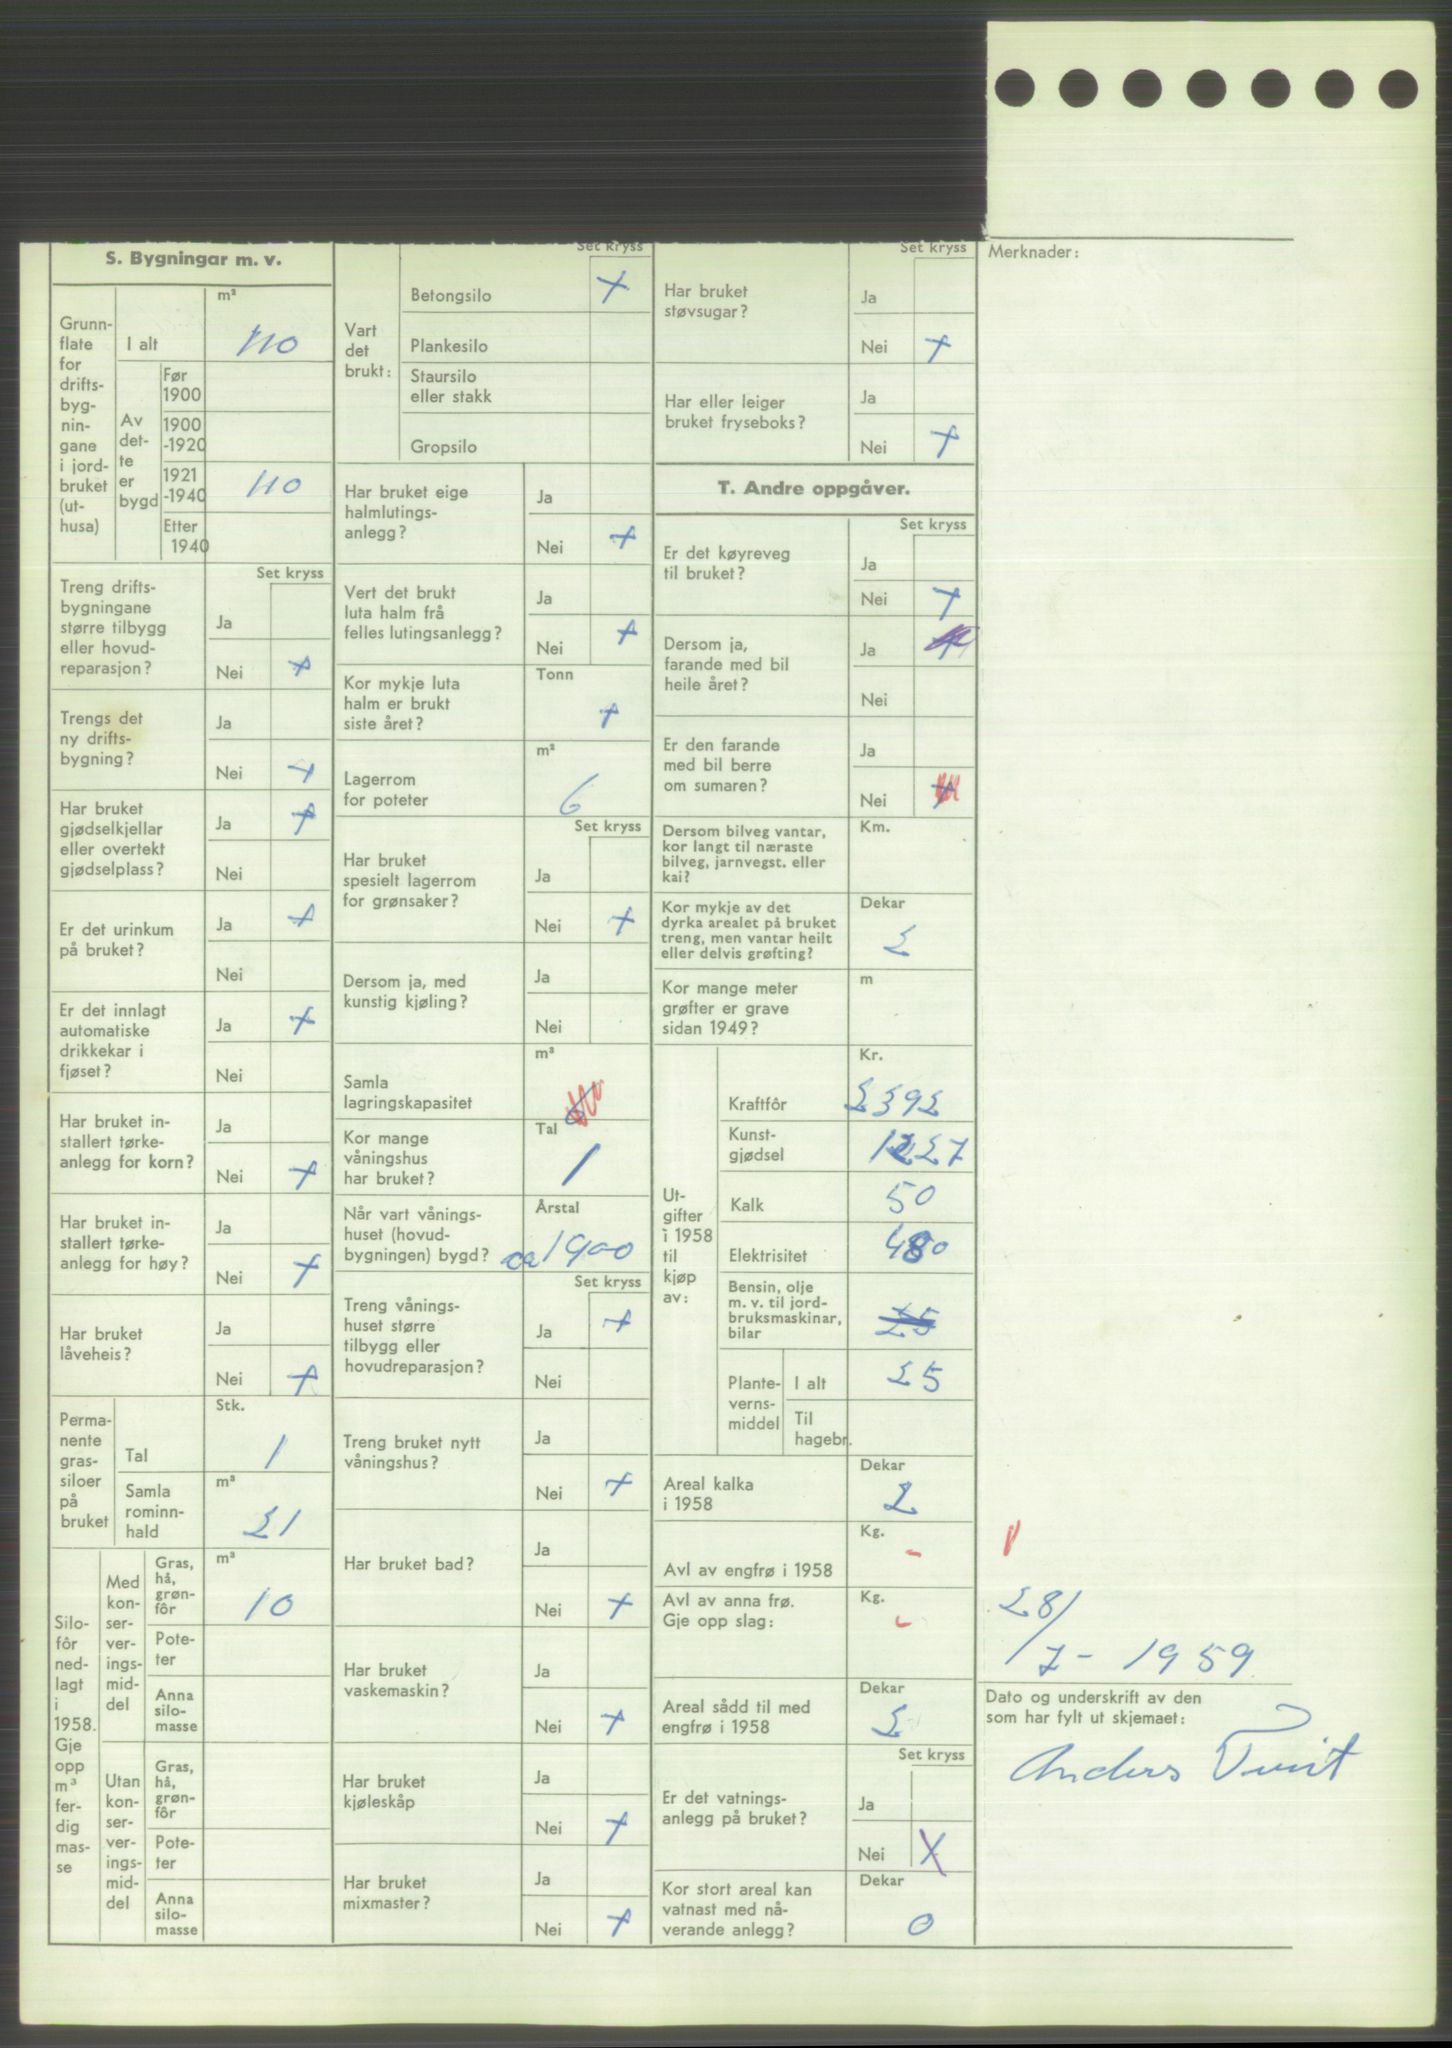 S. Bygningar m. v.
Grunn-
flate
for
drifts-
byg-
nin-
gane
i jord-
bruket
(ut-
husa)
m²
I alt 110
Av
det-
te
er
bygd
Før
1900
1900
-1920
1921
-1940 110
Etter
1940
Set kryss
Treng drifts-
bygningane
større tilbygg
eller hovud-
reparasjon?
Ja
Nei +
Trengs det
ny drifts-
bygning?
Ja
Nei +
Har bruket
gjødselkjellar
eller overtekt
gjødselplass?
Ja +
Nei
Er det urinkum
på bruket?
Ja +
Nei
Er det innlagt
automatiske
drikkekar i
fjøset?
Ja +
Nei
Har bruket in-
stallert tørke-
anlegg for korn?
Ja
Nei +
Har bruket in-
stallert tørke-
anlegg for høy?
Ja
Nei +
Har bruket
låveheis?
Ja
Nei +
Perma-
nente
gras-
siloer
på
bruket
Stk.
Tal 1
m³
Samla
rominn-
hald
21
Silo-
fôr
ned-
lagt
i
1958.
Gje
opp
m³
fer-
dig
mas-
se
Med
kon-
ser-
ver-
ings-
mid-
del
Gras,
hå,
grøn-
fôr
m³
10
Pote-
ter
Anna
silo-
masse
Utan
kon-
ser-
ver-
ings-
mid-
del
Gras,
hå,
grøn-
fôr
Pote-
ter
Anna
silo-
masse
Set kryss
Vart
det
brukt:
Betongsilo +
Plankesilo
Staursilo
eller stakk
Gropsilo
Har bruket eige
halmlutings-
anlegg?
Ja
Nei +
Vert det brukt
luta halm frå
felles lutingsanlegg?
Ja
Nei +
Kor mykje luta
halm er brukt
siste året?
Tonn
+
Lagerrom
for poteter
m²
6
Set kryss
Har bruket
spesielt lagerrom
for grønsaker?
Ja
Nei +
Dersom ja, med
kunstig kjøling?
Ja
Nei
Samla
lagringskapasitet
m³
6
Kor mange
våningshus
har bruket?
Tal
1
Når vart vånings-
huset (hovud-
bygningen) bygd?
Årstal
ca 1900
Set kryss
Treng vånings-
huset større
tilbygg eller
hovudreparasjon?
Ja +
Nei
Treng bruket nytt
våningshus?
Ja
Nei +
Har bruket bad?
Ja
Nei +
Har bruket
vaskemaskin?
Ja
Nei +
Har bruket
kjøleskåp
Ja
Nei +
Har bruket
mixmaster?
Ja
Nei +
Set kryss
Har bruket
støvsugar?
Ja
Nei +
Har eller leiger
bruket fryseboks?
Ja
Nei +
T. Andre oppgåver.
Set kryss
Er det køyreveg
til bruket?
Ja
Nei +
Dersom ja,
farande med bil
heile året?
Ja
Nei
Er den farande
med bil berre
om sumaren?
Ja
Nei +
Dersom bilveg vantar,
kor langt til næraste
bilveg, jarnvegst. eller
kai?
Km.
Kor mykje av det
dyrka arealet på bruket
treng, men vantar heilt
eller delvis grøfting?
Dekar
2
Kor mange meter
grøfter er grave
sidan 1949?
m
Ut-
gifter
i 1958
til
kjøp
av:
Kr.
Kraftfôr 2392
Kunst-
gjødsel 1227
Kalk 50
Elektrisitet 480
Bensin, olje
m. v. til jord-
bruksmaskinar,
bilar
25
Plante-
verns-
middel
I alt 25
Til
hagebr.
Areal kalka
i 1958
Dekar
2
Avl av engfrø i 1958
Kg.
-
Avl av anna frø.
Gje opp slag:
Kg.
-
Areal sådd til med
engfrø i 1958
Dekar
2
Set kryss
Er det vatnings-
anlegg på bruket?
Ja
Nei X
Kor stort areal kan
vatnast med nå-
verande anlegg?
Dekar
0
Merknader:
28/
/7 - 1959
Dato og underskrift av den
som har fylt ut skjemaet:
Anders Tveit